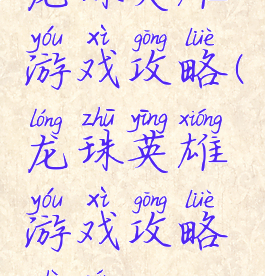 yóu xì gōng lüè
游戏攻略(
lóng zhū yīng xióng
龙珠英雄
yóu xì gōng lüè
游戏攻略